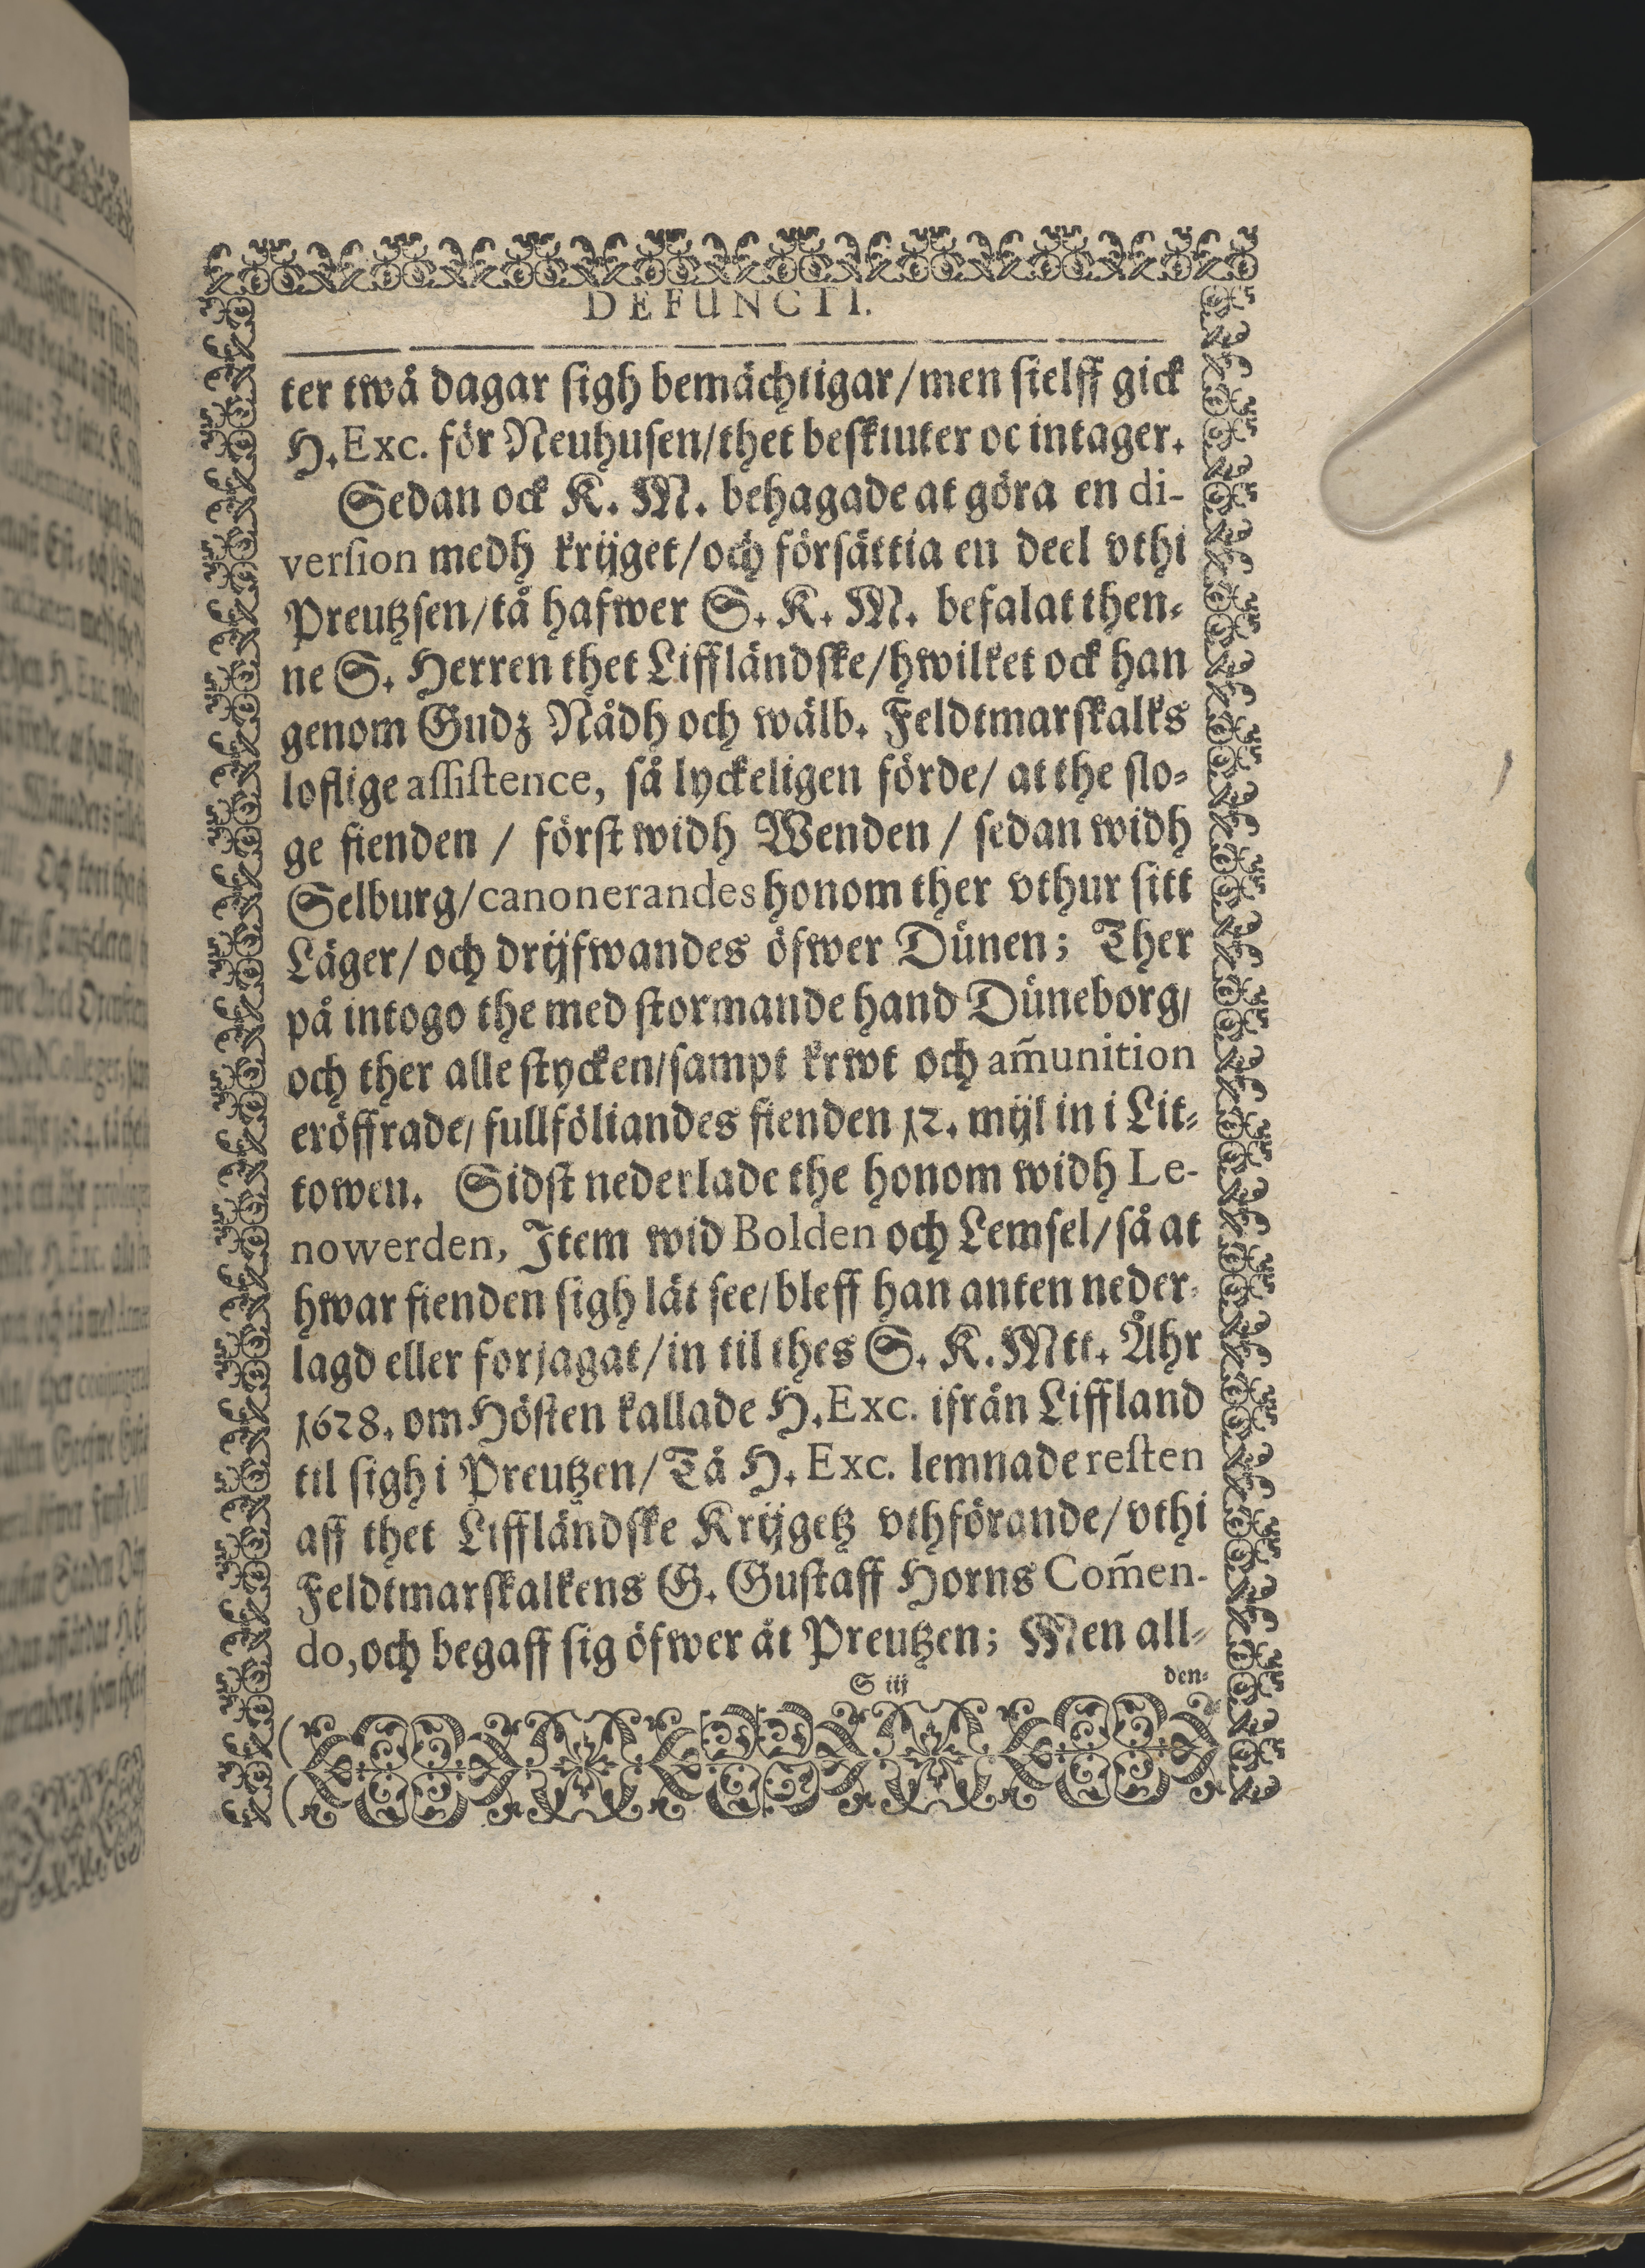 DEFUNCTI.
ter twå dagar sigh bemächtigar/men sielff gick
H. Exc. för Neuhusen/thet beskiuter oc intager.
Sedan ock K. M. behagade at göra en di-
version medh krijget/och försättia en deel vthi
Preutzsen/tå hafwer S. K. M. befalat then-
ne S. Herren thet Liffländske/hwilket ock han
genom Gudz Nådh och wälb. Feldtmarskalks
loflige assistence, så lyckeligen förde/ at the slo-
ge fienden / först widh Wenden / sedan widh
Selburg/canonerandes honom ther vthur sitt
Läger/och drijfwandes öfwer Dünen; Ther
på intogo the med stormande hand Düneborg/
och ther alle stycken/sampt krwt och am̃unition
eröffrade/fullföliandes fienden 12. mijl in i Lit-
towen. Sidst nederlade the honom widh Le-
nowerden, Item wid Bolden och Lemsel/så at
hwar fienden sigh lät see/bleff han anten neder-
lagd eller forjagat/in til thes S. K. Mtt. Åhr
1628. om Hösten kallade H. Exc. ifrån Liffland
til sigh i Preutzen/Tå H. Exc. lemnade resten
aff thet Liffländske Krijgetz vthförande/vthi
Feldtmarskalkens G. Gustaff Horns Com̃en-
do, och begaff sig öfwer åt Preutzen; Men all-
S iij den-